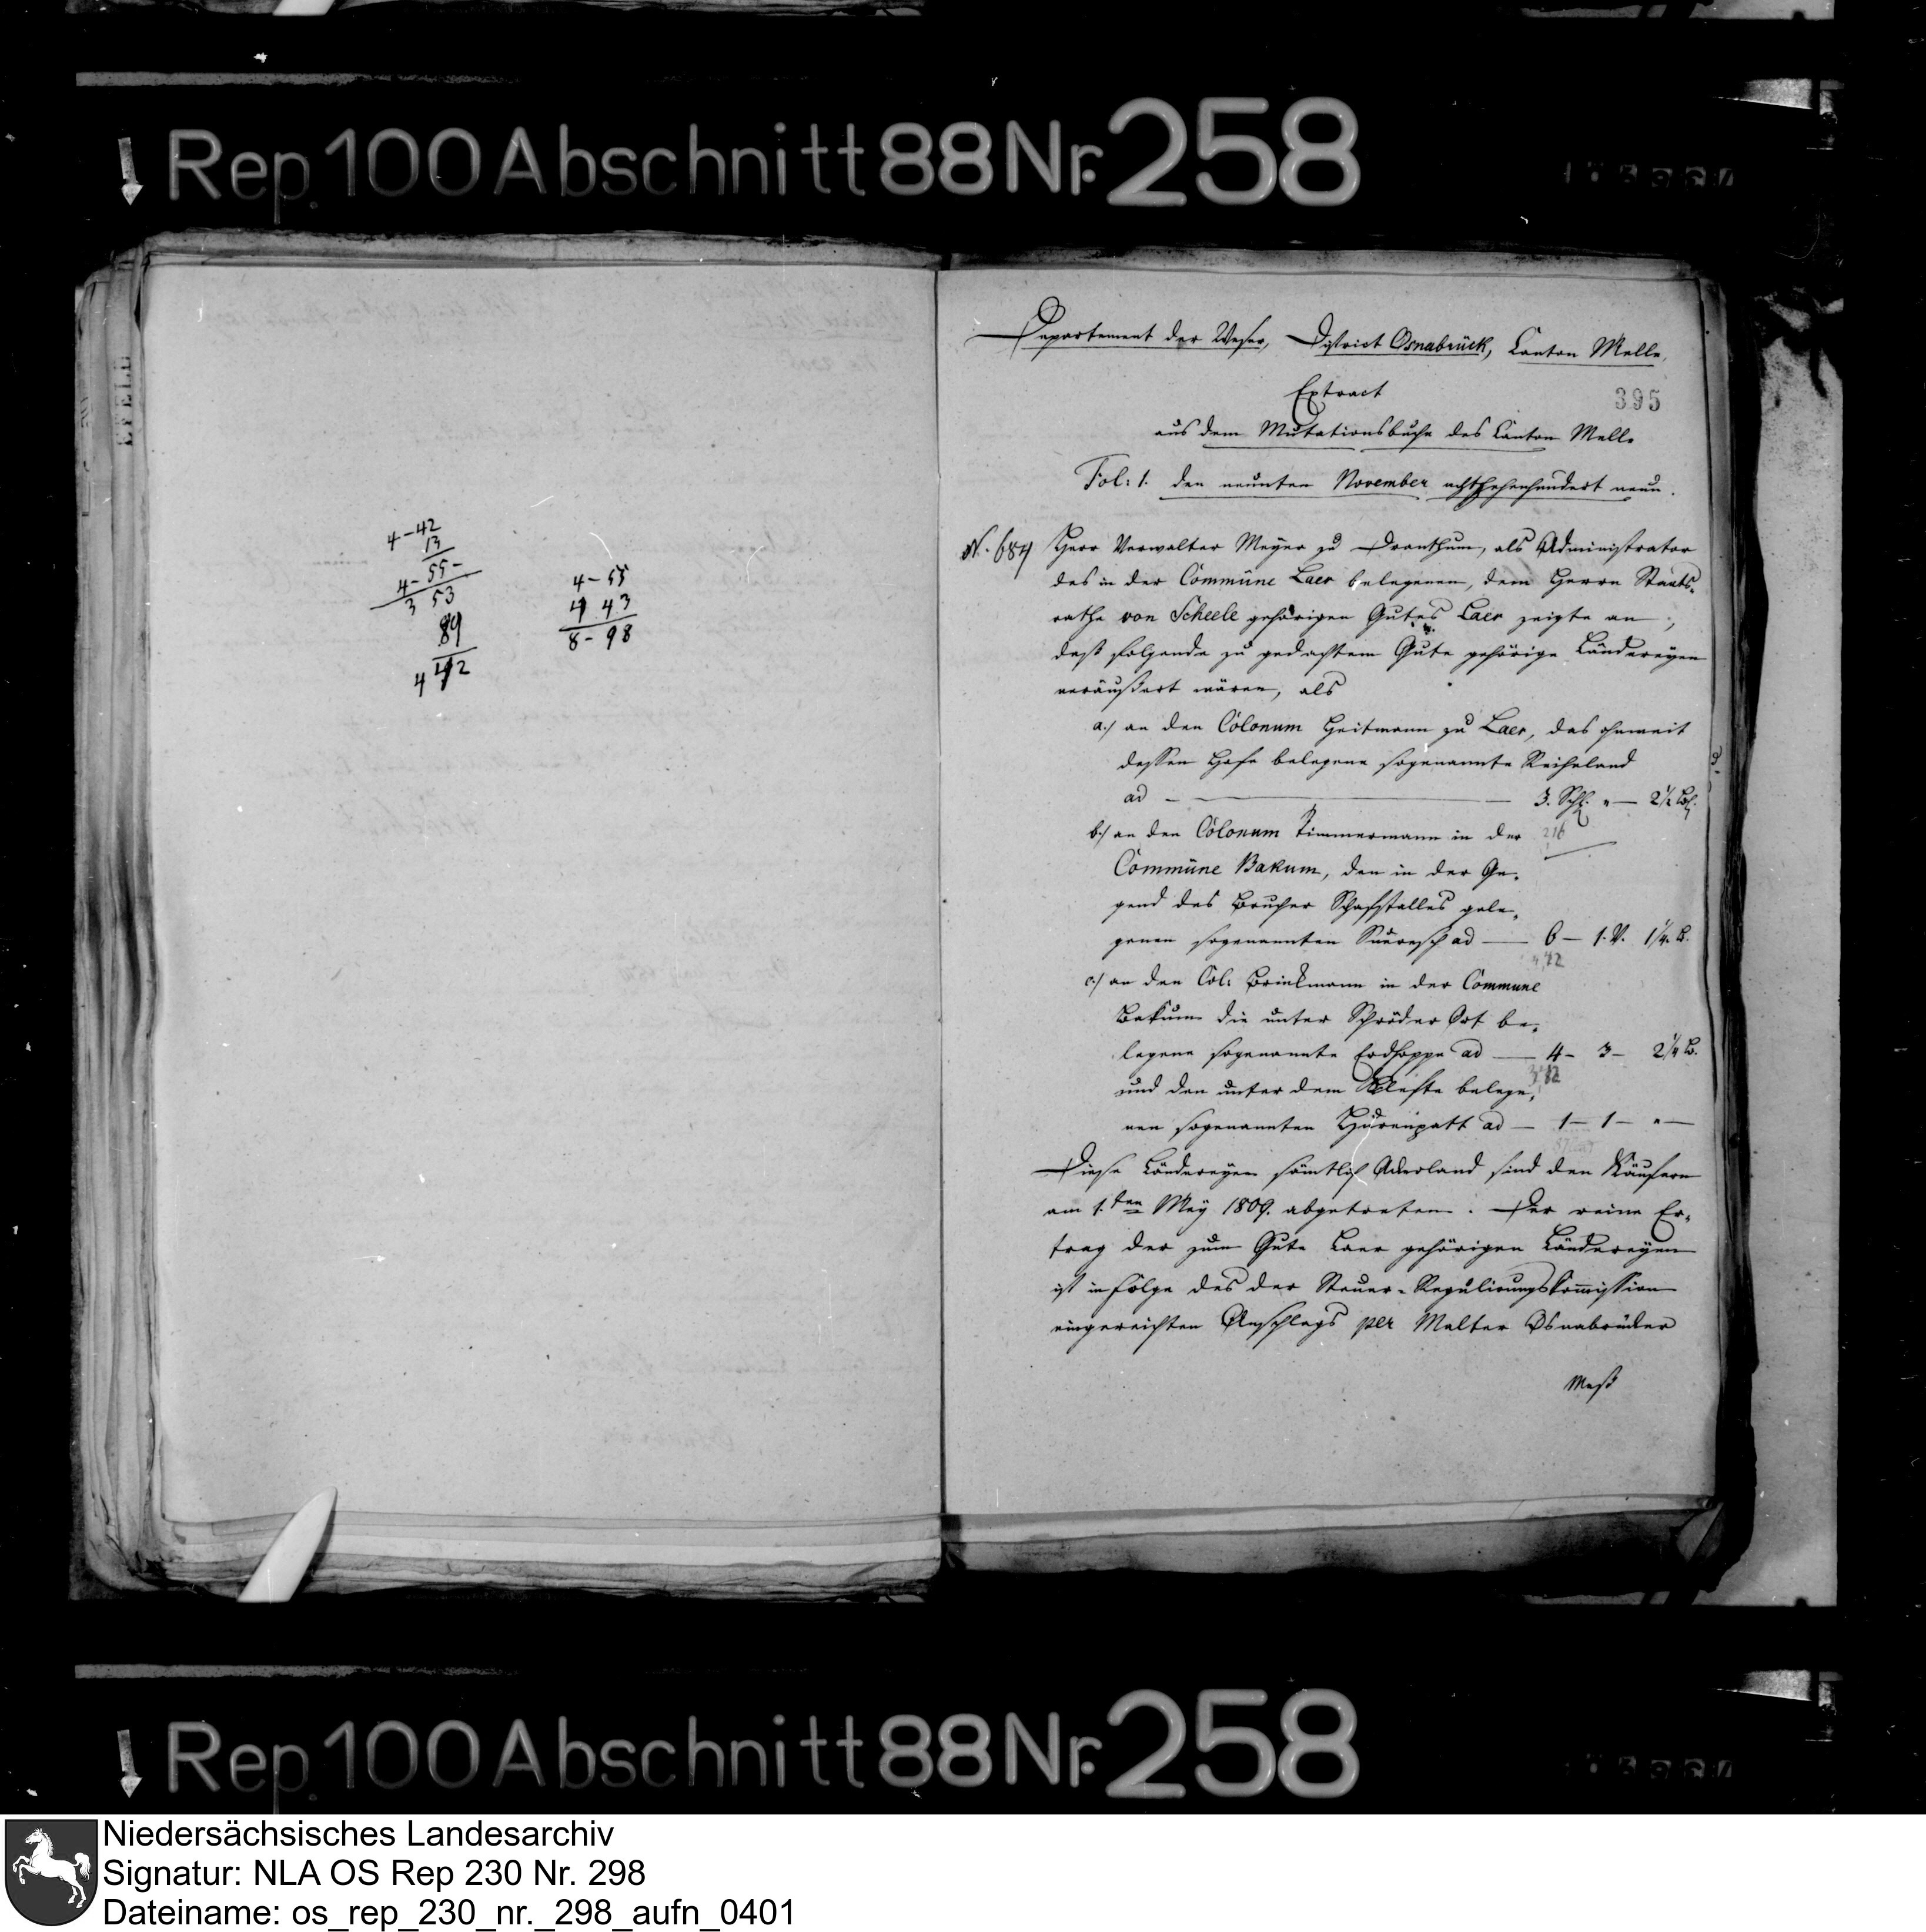 Rep. 100 Abschnitt 88 Nr. 258
4-42
13
4-55-
3 53
89
4 42
4-55
4 43
8-98
Departement der Weser, District Osnabrück, Canton Melle,
Extract
395
aus dem Mutationsbuche des Canton Melle
Fol: 1. den neunten November achtzehenhundert neun.
N. 684 Herr Verwalter Meyer zu Dratum, als Administrator
des in der Commüne Laer belegenen, dem Herrn Staats-
rathe von Scheele gehörigen Gutes Laer zeigte an,
daß folgende zu gedachtem Gute gehörige Ländereyen
veräußert wären, als
a./ an den Colonum Heitmann zu Laer, das ohnweit
dessen Hofe belegene sogenannte Reiheland
ad — 3. Schfl. " — 2½ Bch.
b./ an den Colonum Timmermann in der 216
Commüne Bakum, den in der Ge-
gend des Brucher Schafstalles gele-
genen sogenannten Süeresch ad — 6 — 1. V. 1¼ B.
c./ an den Col: Brinkmann in der Commune
Bakum die unter Schröder Ort be-
legene sogenannte ad — 4 - 3 - 2¼ B.
und den unter dem belege-
nen sogenannten Hürenpatt ad — 1 - 1 - " —
Diese Ländereyen sämtlich Ackerland sind den Käufern
am 1.ten Mey 1809. abgetreten. Der reine Er-
trag der zum Gute Laer gehörigen Ländereyen
ist in Folge des der Steuer-Regulirungskommission
eingereichten Anschlags per Malter Osnabrücker
Maß
Rep. 100 Abschnitt 88 Nr. 258
Niedersächsisches Landesarchiv
Signatur: NLA OS Rep 230 Nr. 298
Dateiname: os_rep_230_nr._298_aufn_0401